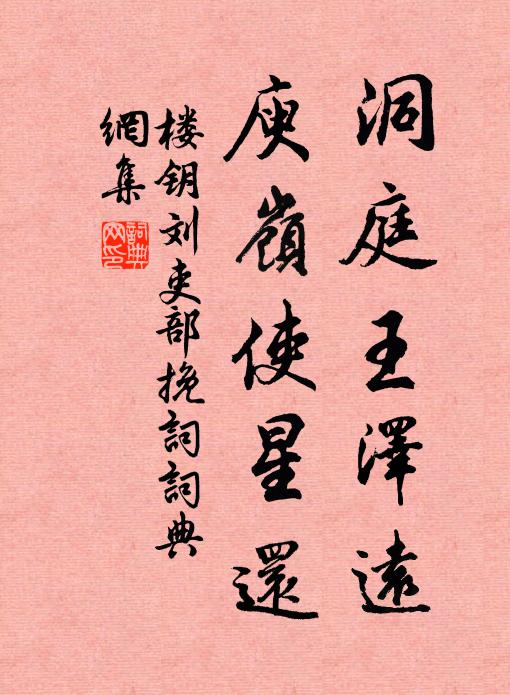 洞庭王澤遠
庾嶺使星還
楼钥刘吏部挽詞詞典
網集
詞典
网印